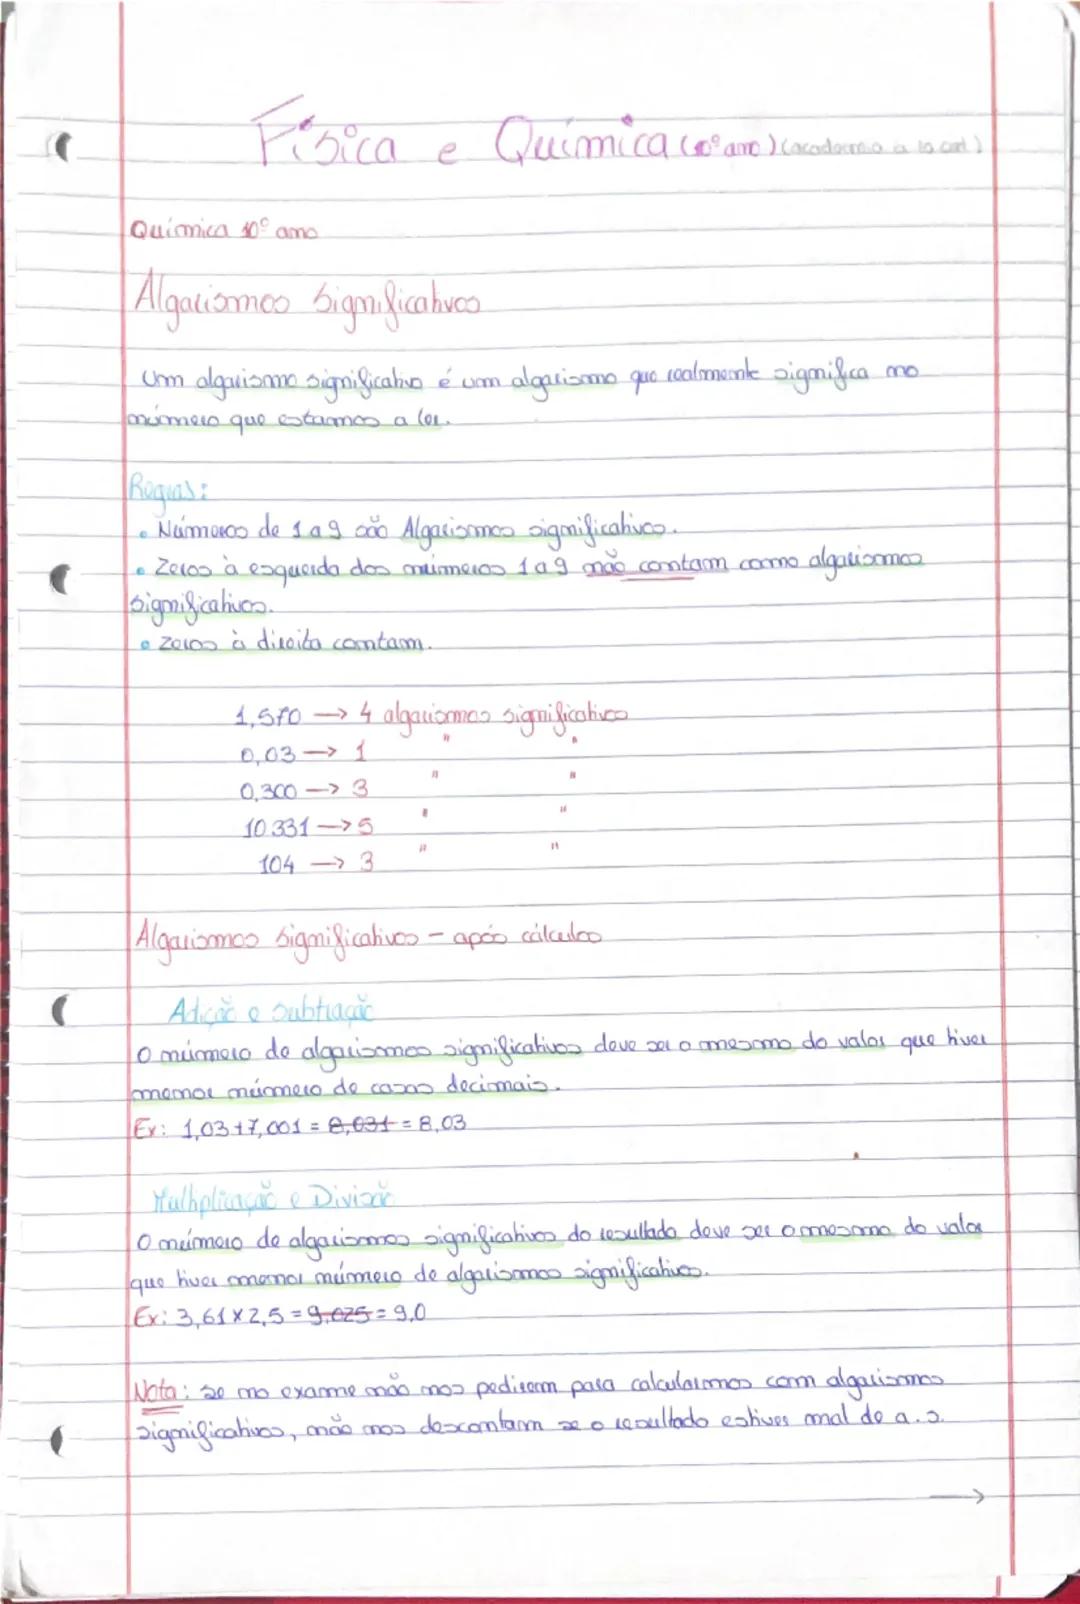 Física e Química (10º ano) (academia à la cart)
Química 10º ano
Algarismos Significativos
Um algarismo significativo é um algarismo que realmente significa no
número que estamos a ler.
Regras:
• Números de 1 a 9 são Algarismos significativos.
• Zeros à esquerda dos números 1 a 9 não contam como algarismos
significativos.
• Zeros à direita contam.
1,570 → 4 algarismos significativos
0,03 → 1 " "
0,300 → 3 " "
10331 → 5 " "
104 → 3 " "
Algarismos Significativos - após cálculos
Adição e subtração
O número de algarismos significativos deve ser o mesmo do valor que tiver
menor número de casas decimais.
Ex: 1,03+7,001 = 8,031 = 8,03
Multiplicação e Divisão
O número de algarismos significativos do resultado deve ser o mesmo do valor
que tiver menor número de algarismos significativos.
Ex: 3,61 x 2,5 = 9,025 = 9,0
Nota: se no exame não nos pedirem para calcularmos com algarismos
significativos, não nos descontam se o resultado estiver mal de a.s.
→